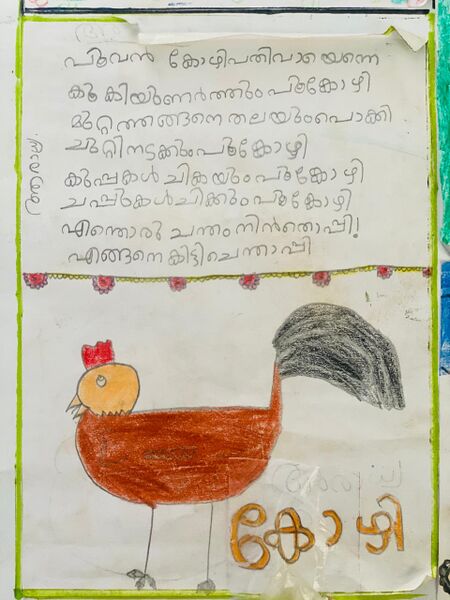 പൂവൻ കോഴിപതിവായെന്നെ
കൂകിയുണർത്തും പൂങ്കോഴി
മുറ്റത്തങ്ങനെ തലയുംപൊക്കി
ചുറ്റിനടക്കും പൂങ്കോഴി
കുപ്പകൾ ചികയും പൂങ്കോഴി
ചപ്പുകൾ ചിക്കും പൂങ്കോഴി
എന്തൊരു ചന്തം നിൻതൊപ്പി!
എങ്ങനെ കിട്ടി ചെന്തൊപ്പി
കോഴി